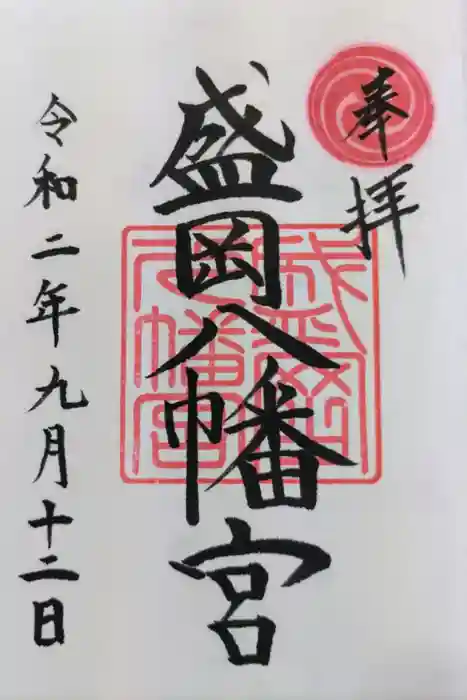 奉拝
盛岡八幡宮
令和二年九月十二日
盛岡八幡宮